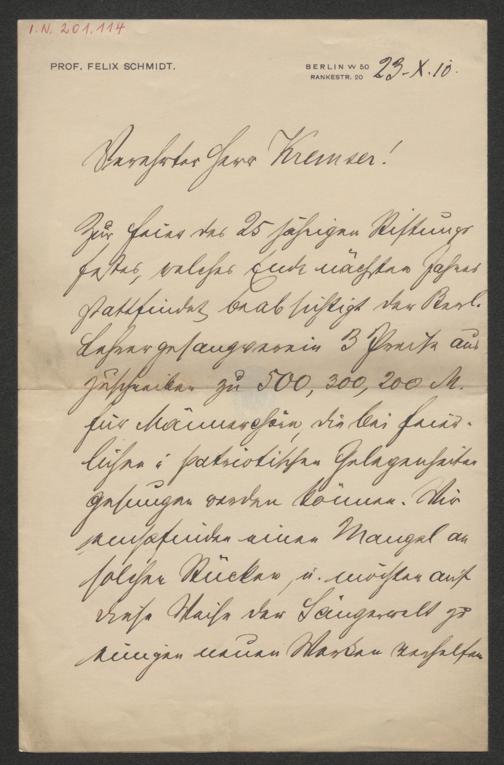 I.N. 201.114
PROF. FELIX SCHMIDT.
BERLIN W 50
RANKESTR. 20
23-X.10.
Verehrter Herr Kremser!
Zur Feier des 25 jährigen Stiftungs
festes, welches Ende nächsten Jahres
stattfindet, beabsichtigt der Berl.
Lehrergesangverein 3 Preise aus
zuschreiben zu 500, 300, 200 M.
für Männerchöre, die bei feier-
lichen u. patriotischen Gelegenheiten
gesungen werden können. Wir
empfinden einen Mangel an
solchen Stücken, u. möchten auf
diese Weise der Sängerwelt zu
einigen neuen Werken verhelfen